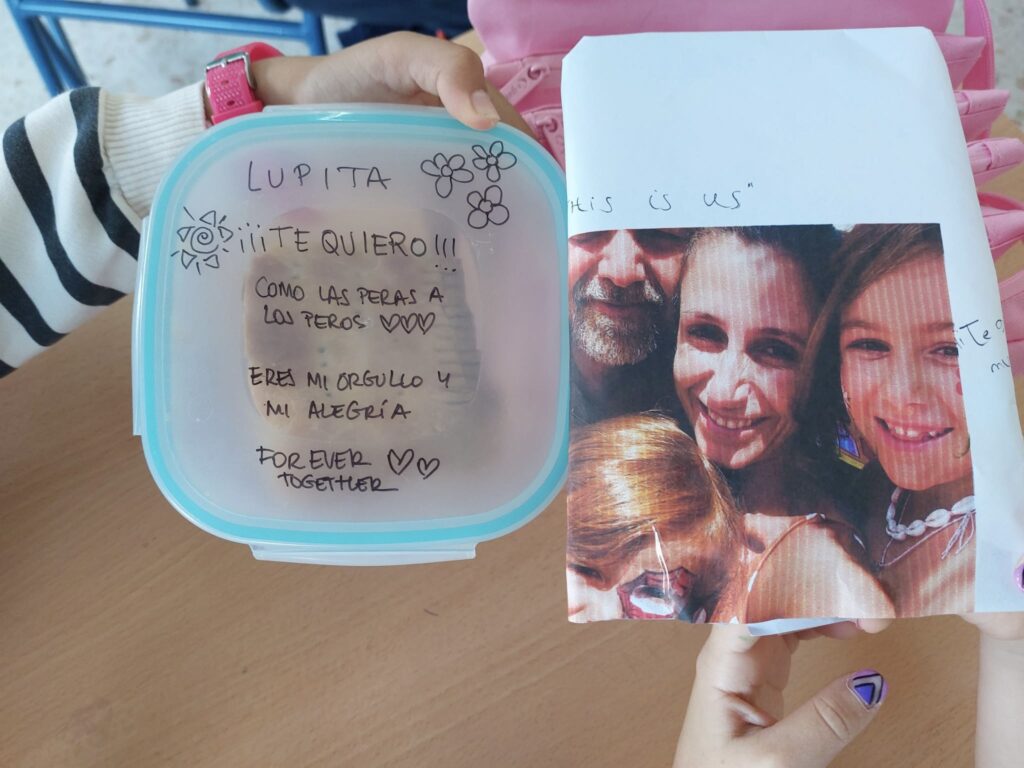 LUPITA
¡¡¡TE QUIERO!!!
COMO LAS PERAS A
LOS PEROS
ERES MI ORGULLO Y
MI ALEGRÍA
FOREVER
TOGETHER
His is us"
¡¡Te